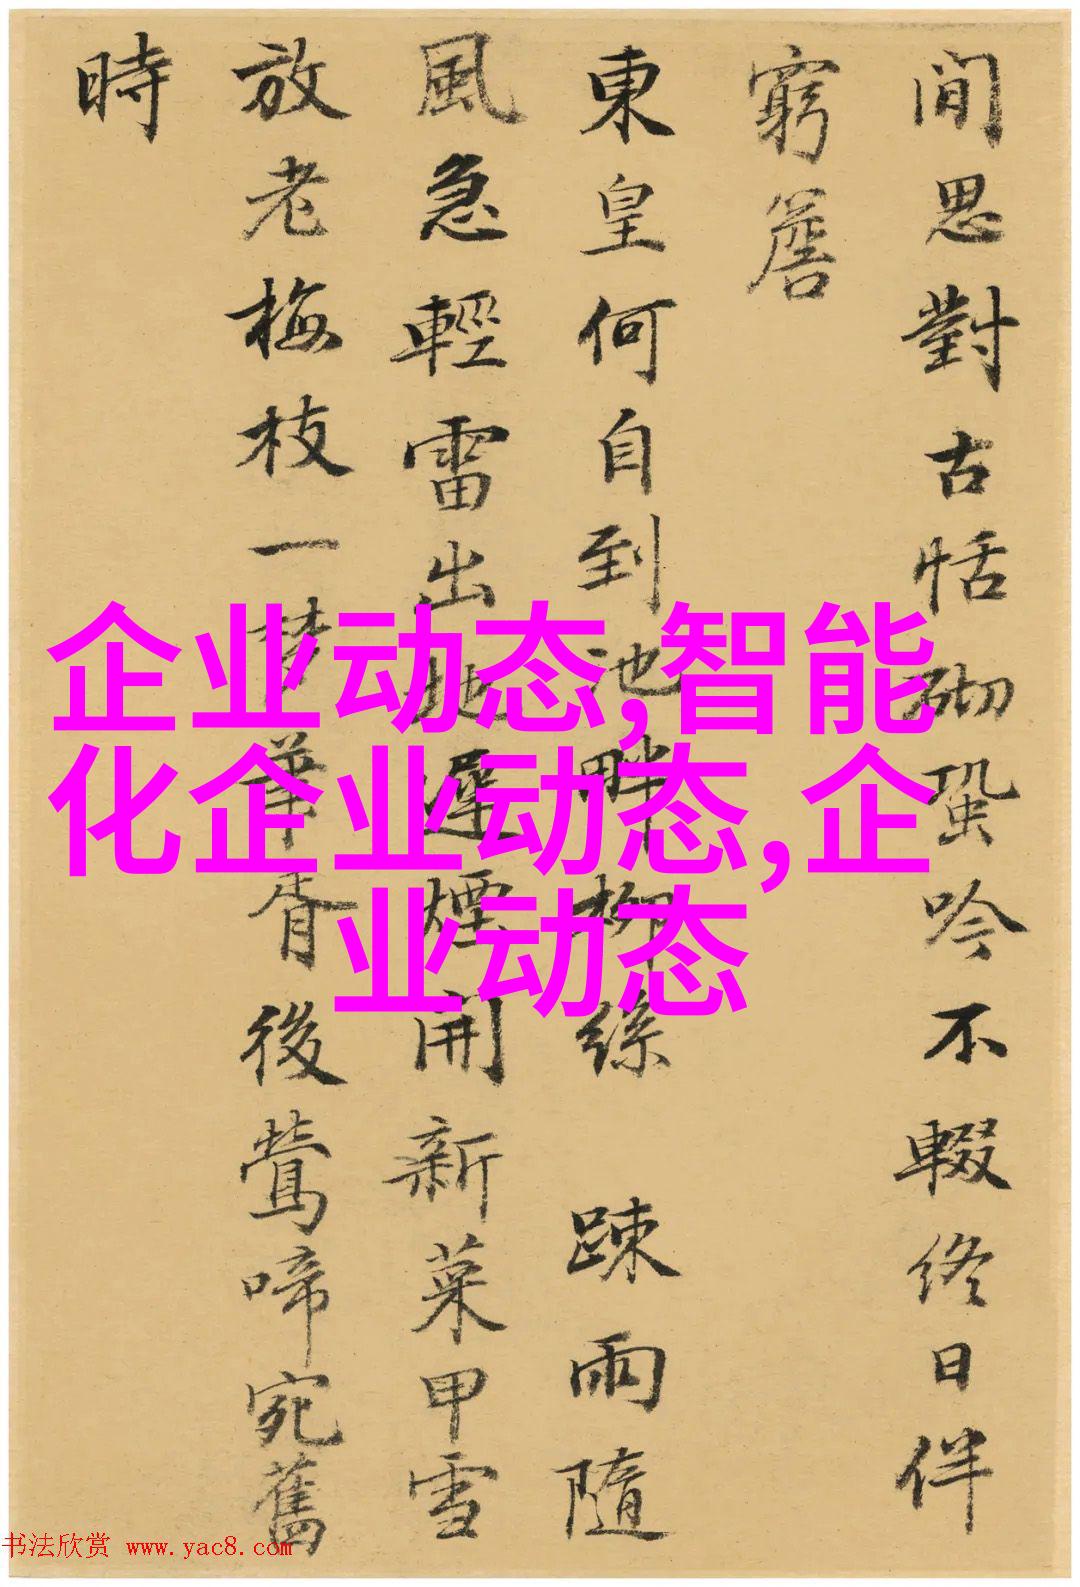 閒思對古恬砌蛩吟不輟終日伴
窮簷
東皇何自到池畔柳絲 踈雨隨
風急輕雷出地遲煙開新菜甲雪
放老梅枝一梦華胥後鶯啼宛舊
時
企业动态,智能
化企业动态,企
业动态
书法欣赏 www.yac8.com